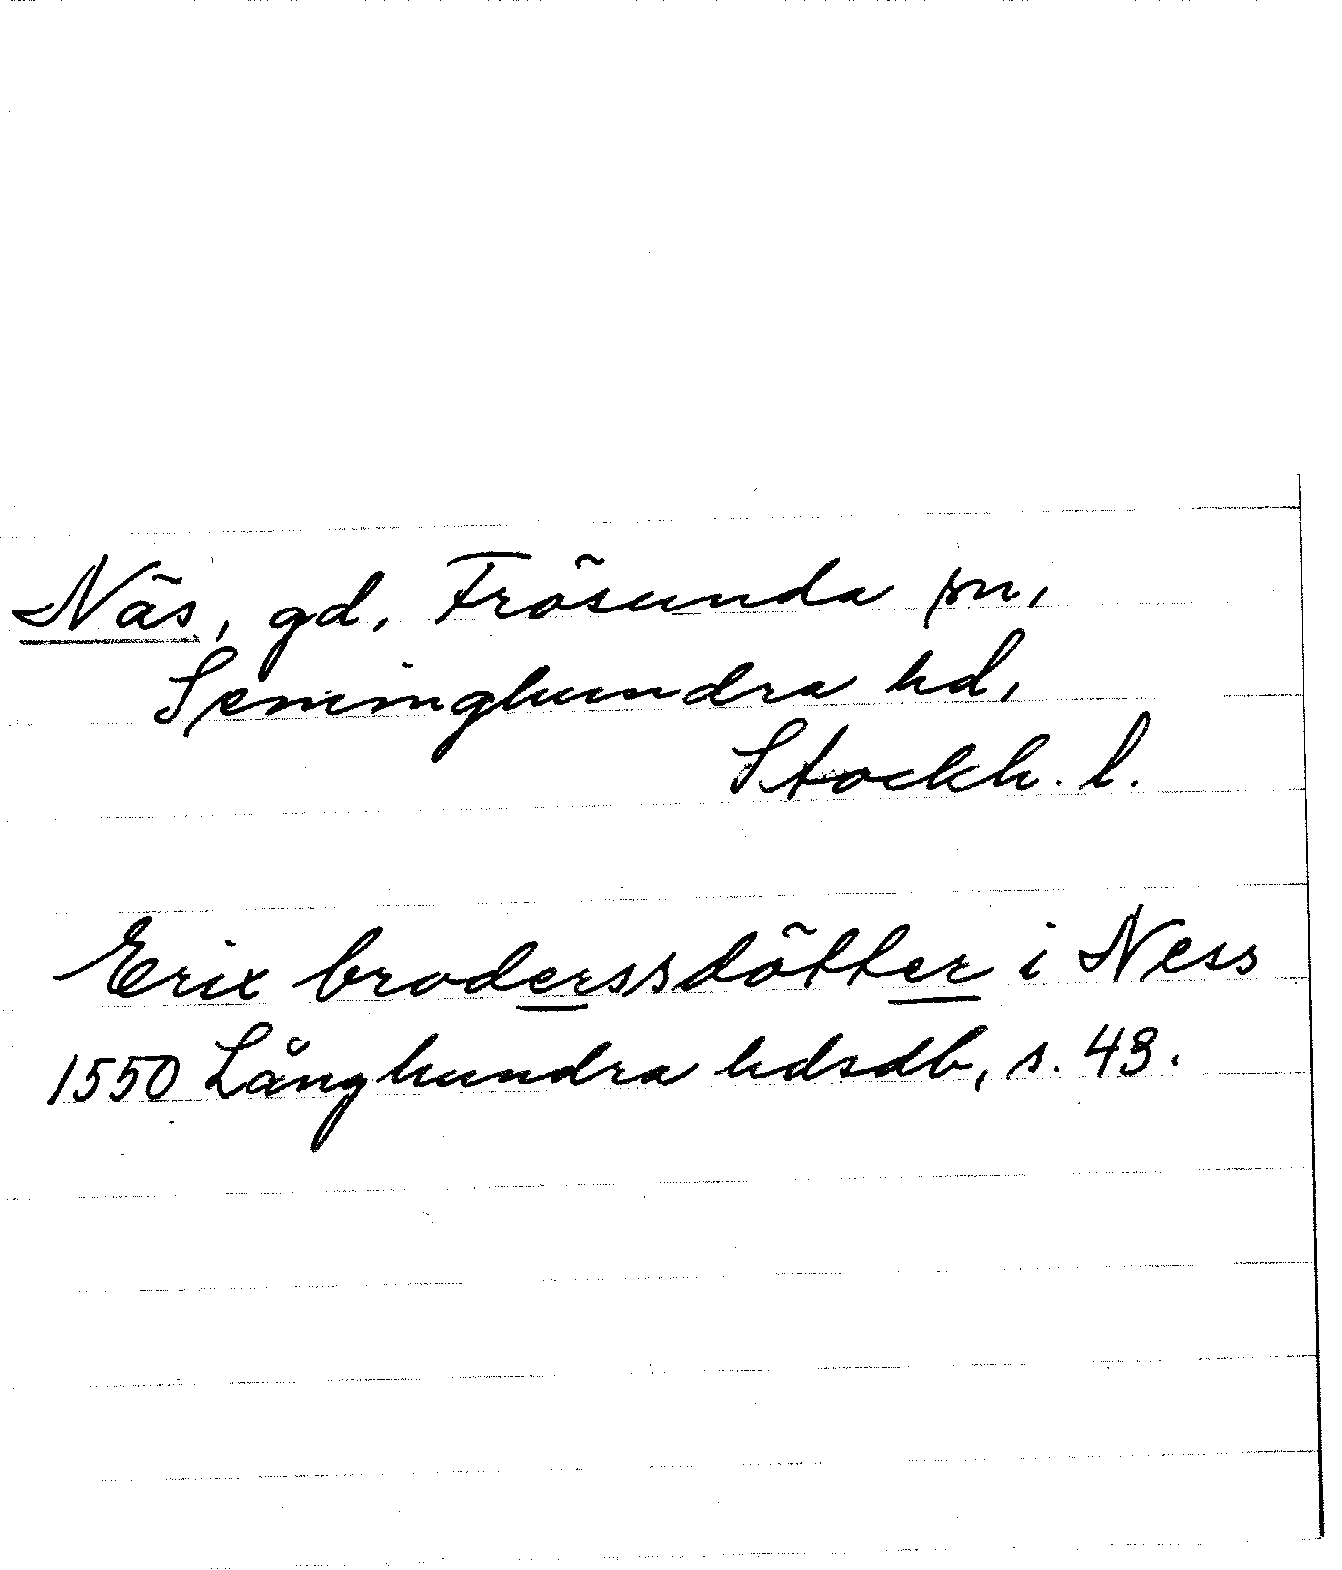 Näs, gd, Frösunda sn,
Seminghundra hd,
Stockh. l.
Erix broderssdötter i Ness
1550 Långhundra hdsdb, s. 43.